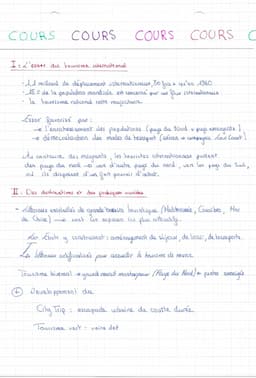 COURS COURS COURS COURS C
I : L'essor du tourisme international
- 1,2 milliard de déplacement internationaux, 50 fois + qu'en 1950
- 15 % de la population mondiale est concerné par un flux internationaux
- la tourisme national reste majoritaire.
- Essor favorisé par :
→ l'enrichissement des populations (pays du Nord + pays émergents)
→ démocratisation des modes de transport (avion → compagnie Low Cost)
Au contraire des migrants, les touristes internationaux partent
des pays du nord → vers d'autre pays du nord, vers les pays du Sud,
car ils disposent d'un fort pouvoir d'achat.
II : Des destinations et des pratiques variées
- littoraux exploités de grande touristique (Méditerranée, Caraïbes, Mer
de Chine) → sont les espaces les plus attractifs.
Les littoraux artificialisés pour accueillir le tourisme de masse.
Tourisme hivernal → grands massif montagneux (Pays du Nord)
+ Développement des
City Trip : escapade urbaine de courte durée.
Tourisme vert :